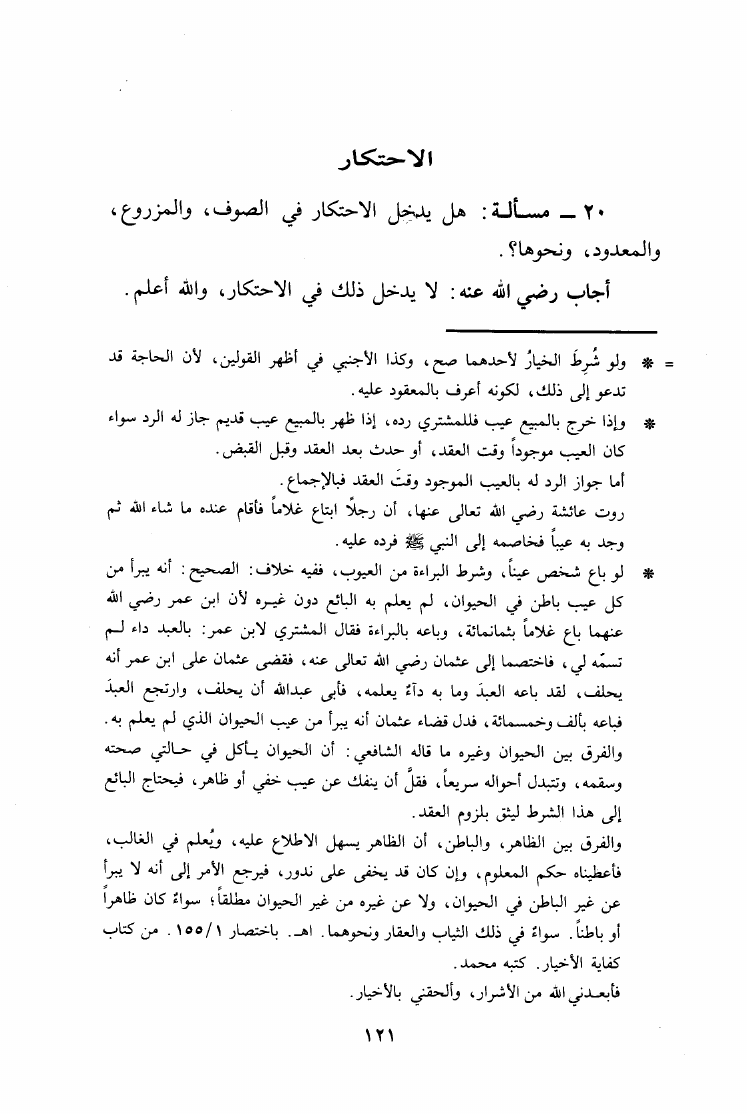 الاحتكار
٢٠ ـ مسألة: هل يدخل الاحتكار في الصوف، والمزروع،
والمعدود، ونحوها؟.
أجاب رضي الله عنه: لا يدخل ذلك في الاحتكار، والله أعلم.
= * ولو شُرِطَ الخيارُ لأحدهما صح، وكذا الأجنبي في أظهر القولين، لأن الحاجة قد
تدعو إلى ذلك، لكونه أعرف بالمعقود عليه.
* وإذا خرج بالمبيع عيب فللمشتري رده، إذا ظهر بالمبيع عيب قديم جاز له الرد سواء
كان العيب موجوداً وقت العقد، أو حدث بعد العقد وقبل القبض.
أما جواز الرد له بالعيب الموجود وقتَ العقد فبالإجماع.
روت عائشة رضي الله تعالى عنها، أن رجلًا ابتاع غلاماً فأقام عنده ما شاء الله ثم
وجد به عيباً فخاصمه إلى النبي ﷺ فرده عليه.
* لو باع شخص عيناً، وشرط البراءة من العيوب، ففيه خلاف: الصحيح: أنه يبرأ من
كل عيب باطن في الحيوان، لم يعلم به البائع دون غيره لأن ابن عمر رضي الله
عنهما باع غلاماً بثمانمائة، وباعه بالبراءة فقال المشتري لابن عمر: بالعبد داء لم
تسمّه لي، فاختصما إلى عثمان رضي الله تعالى عنه، فقضى عثمان على ابن عمر أنه
يحلف، لقد باعه العبدَ وما به دآءٌ يعلمه، فأبى عبدالله أن يحلف، وارتجع العبدَ
فباعه بألف وخمسمائة، فدل قضاء عثمان أنه يبرأ من عيب الحيوان الذي لم يعلم به.
والفرق بين الحيوان وغيره ما قاله الشافعي: أن الحيوان يأكل في حالتي صحته
وسقمه، وتتبدل أحواله سريعاً، فقلَّ أن ينفك عن عيب خفي أو ظاهر، فيحتاج البائع
إلى هذا الشرط ليثق بلزوم العقد.
والفرق بين الظاهر، والباطن، أن الظاهر يسهل الاطلاع عليه، ويُعلم في الغالب،
فأعطيناه حكم المعلوم، وإن كان قد يخفى على ندور، فيرجع الأمر إلى أنه لا يبرأ
عن غير الباطن في الحيوان، ولا عن غيره من غير الحيوان مطلقاً؛ سواءٌ كان ظاهراً
أو باطناً. سواءٌ في ذلك الثياب والعقار ونحوهما. اهـ. باختصار ١٥٥/١. من كتاب
كفاية الأخيار. كتبه محمد.
فأبعدني الله من الأشرار، وألحقني بالأخيار.
١٢١